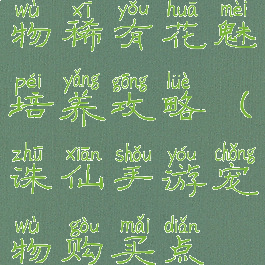 wù xī yǒu huā mèi
物稀有花魅
péi yǎng gōng lüè
培养攻略（
zhū xiān shǒu yóu chǒng
诛仙手游宠
wù gòu mǎi diǎn
物购买点